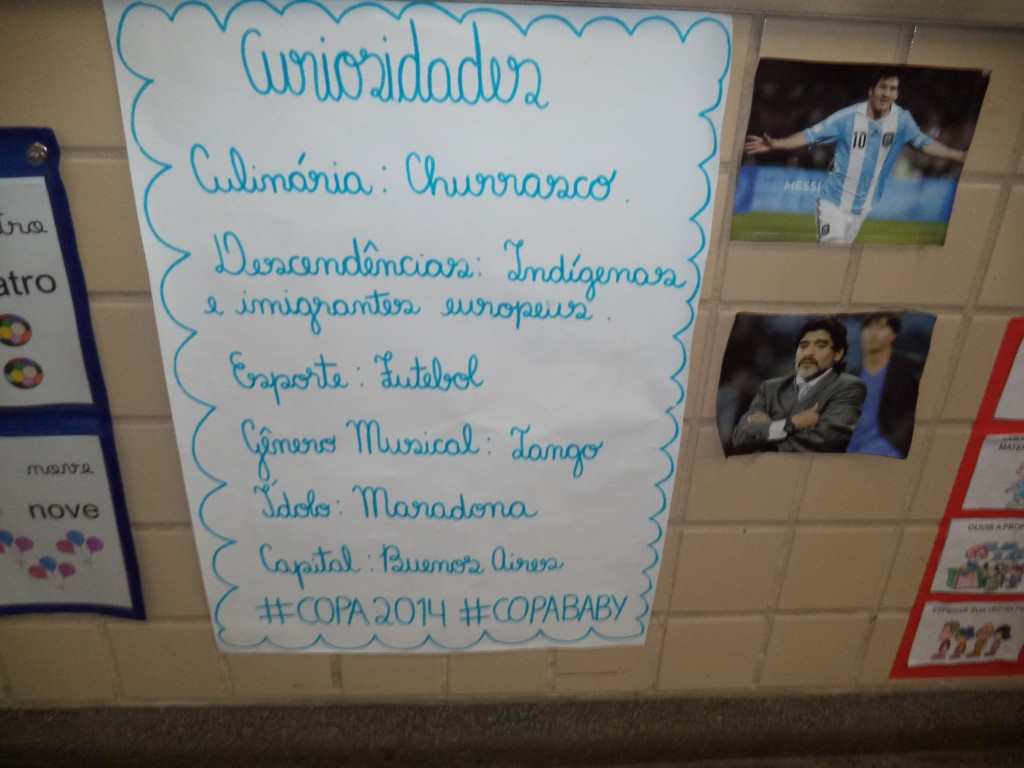 Curiosidades
Culinária: Churrasco.
Descendências: Indígenas
e imigrantes europeus.
Esporte: Futebol
Gênero Musical: Tango
Ídolo: Maradona
Capital: Buenos Aires
#COPA2014 #COPABABY
tro
atro
nove
nove
10
MESSI
MATE
OUVIR A PROF
ESPERAR SUA VEZ